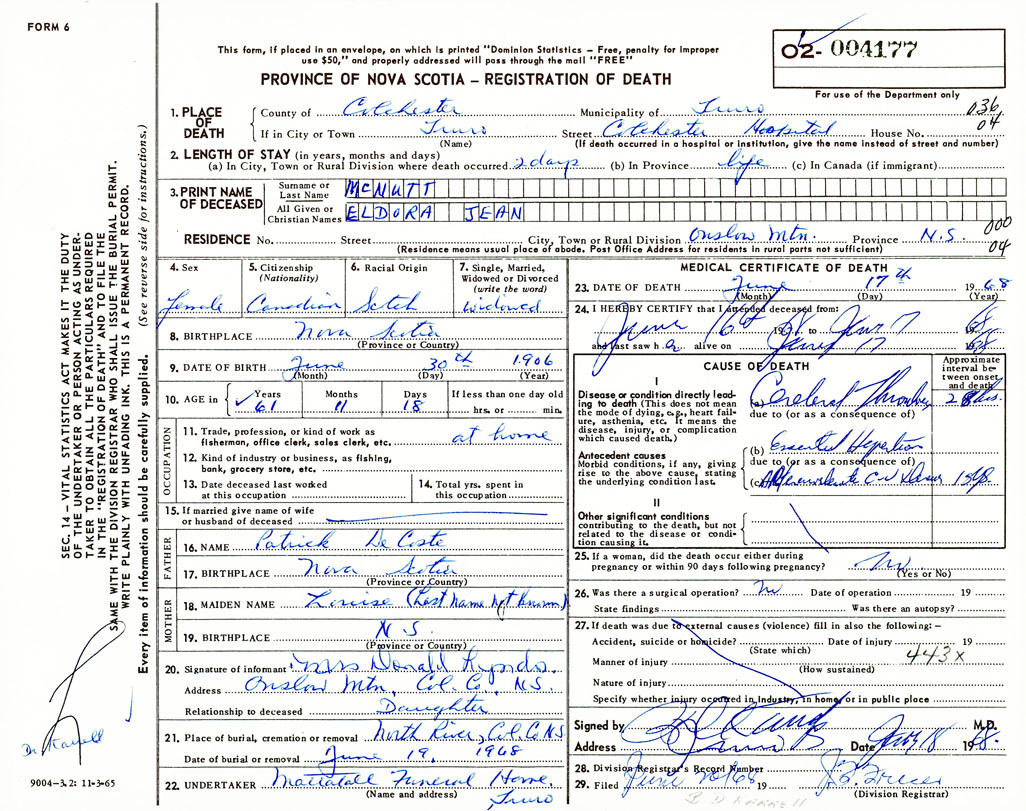 FORM 6
This form, if placed in an envelope, on which is printed "Dominion Statistics – Free, penalty for improper
use $50," and properly addressed will pass through the mail "FREE"
PROVINCE OF NOVA SCOTIA – REGISTRATION OF DEATH
02- 004177
For use of the Department only
1. PLACE OF DEATH
County of Colchester Municipality of Truro 036
If in City or Town Truro Street Colchester Hospital House No. 04
(Name) (If death occurred in a hospital or institution, give the name instead of street and number)
2. LENGTH OF STAY (in years, months and days)
(a) In City, Town or Rural Division where death occurred 2 days (b) In Province life (c) In Canada (if immigrant)
3. PRINT NAME OF DECEASED
Surname or Last Name McNUTT
All Given or Christian Names ELDORA JEAN
000
RESIDENCE No. Street City, Town or Rural Division Onslow Mtn. Province N.S. 04
(Residence means usual place of abode. Post Office Address for residents in rural parts not sufficient)
4. Sex
Female
5. Citizenship
(Nationality)
Canadian
6. Racial Origin
Scotch
7. Single, Married,
Widowed or Divorced
(write the word)
widowed
8. BIRTHPLACE Nova Scotia
(Province or Country)
9. DATE OF BIRTH June 30th 1906
(Month) (Day) (Year)
10. AGE in
Years Months Days If less than one day old
61 11 18 hrs. or min.
OCCUPATION
11. Trade, profession, or kind of work as
fisherman, office clerk, sales clerk, etc. at home
12. Kind of industry or business, as fishing,
bank, grocery store, etc.
13. Date deceased last worked
at this occupation
14. Total yrs. spent in
this occupation
15. If married give name of wife
or husband of deceased
FATHER
16. NAME Patrick De Coste
17. BIRTHPLACE Nova Scotia
(Province or Country)
MOTHER
18. MAIDEN NAME Louise (Last Name Not Known)
19. BIRTHPLACE N S.
(Province or Country)
20. Signature of informant Mrs Donald
Address Onslow Mtn, Col. Co, N.S.
Relationship to deceased Daughter
21. Place of burial, cremation or removal North River, Col Co NS
Date of burial or removal June 19, 1968
22. UNDERTAKER Mattatall Funeral Home,
(Name and address) Truro
MEDICAL CERTIFICATE OF DEATH
23. DATE OF DEATH June 17th 1968
(Month) (Day) (Year)
24. I HEREBY CERTIFY that I attended deceased from:
June 16th 19 to 17 19
and last saw h alive on 17 19
CAUSE OF DEATH
Approximate
interval be-
tween onset
and death
I
Disease or condition directly lead-
ing to death (This does not mean
the mode of dying, e.g., heart fail-
ure, asthenia, etc. It means the
disease, injury, or complication
which caused death.)
(a) Cerebral
due to (or as a consequence of)
Antecedent causes
Morbid conditions, if any, giving
rise to the above cause, stating
the underlying condition last.
(b) Essential
due to (or as a consequence of)
(c)
II
Other significant conditions
contributing to the death, but not
related to the disease or condi-
tion causing it.
25. If a woman, did the death occur either during
pregnancy or within 90 days following pregnancy? No
(Yes or No)
26. Was there a surgical operation? No Date of operation 19
State findings Was there an autopsy?
27. If death was due to external causes (violence) fill in also the following: –
Accident, suicide or homicide? Date of injury 19
(State which) 443X
Manner of injury
(How sustained)
Nature of injury
Specify whether injury occurred in Industry, in home or in public place
Signed by M.D.
Address Date 18 1968
28. Division Registrar's Record Number
29. Filed June 20 1968 19
(Division Registrar)
SEC. 14 – VITAL STATISTICS ACT MAKES IT THE DUTY
OF THE UNDERTAKER OR PERSON ACTING AS UNDER-
TAKER TO OBTAIN ALL THE PARTICULARS REQUIRED
IN THE "REGISTRATION OF DEATH" AND TO FILE THE
SAME WITH THE DIVISION REGISTRAR WHO SHALL ISSUE THE BURIAL PERMIT.
WRITE PLAINLY WITH UNFADING INK. THIS IS A PERMANENT RECORD.
Every item of information should be carefully supplied. (See reverse side for instructions.)
9004–3.2: 11-3-65